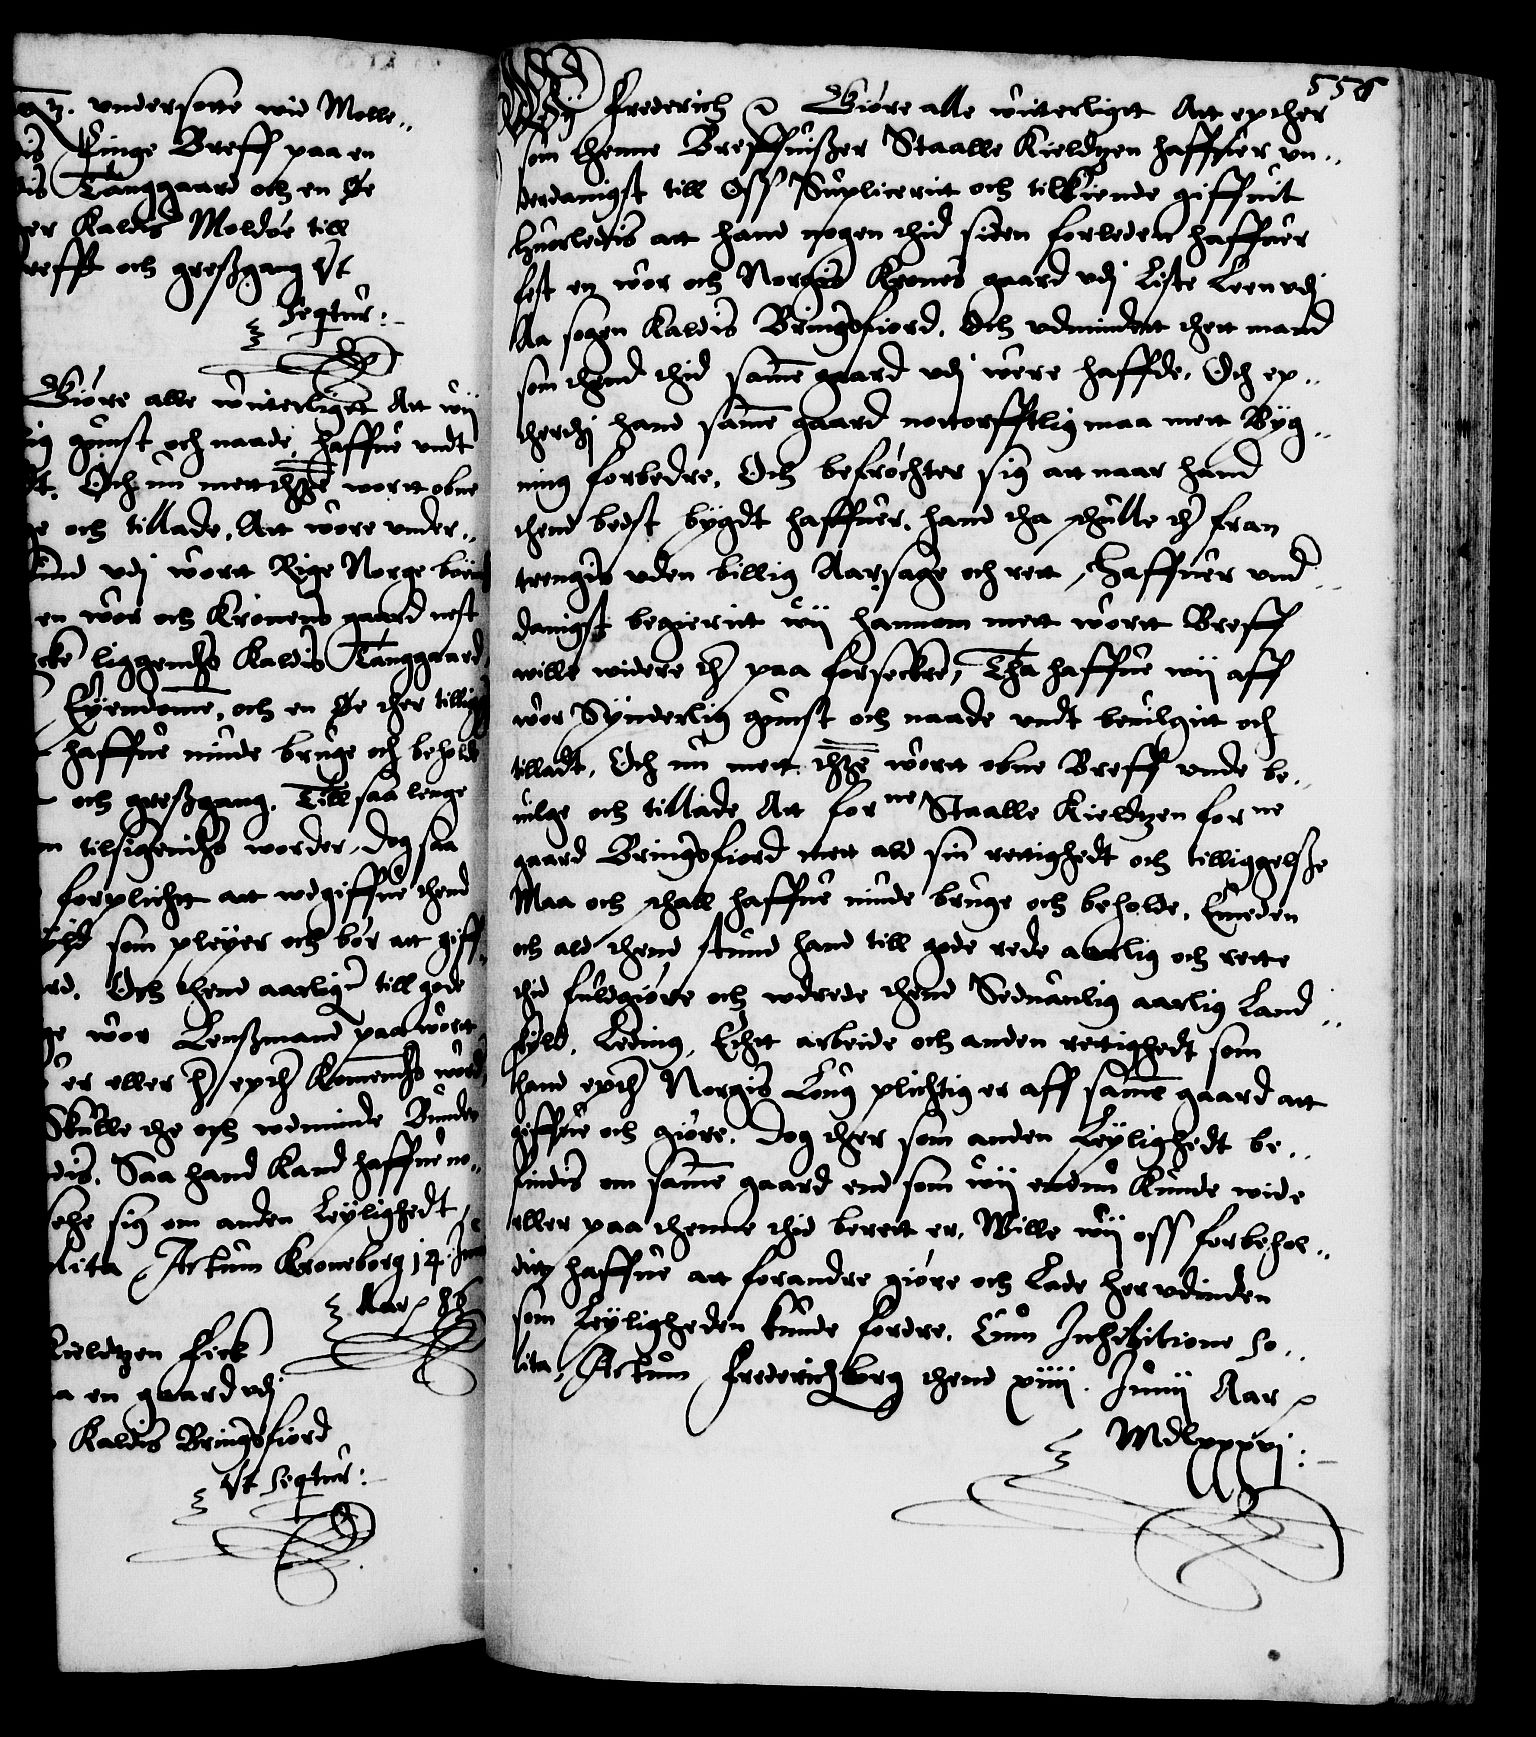 undersotte wid Molle„
Finge Breff paa en
Tånggaard och en Øe
Kaldis Moldøe till
och greßgang Vt
Seqtur:
Giøre alle witterligtt Att wij
gunst och naade, haffue undt
Och nu mett thze wortt obne
och tillade, Att wore under„
udj wortt Rige Norge
en wor och Kronens gaard nest
liggendis Kaldis Tånggaard
Eyendome, och en Øe ther tillige
haffue niude bruge och beholde
och greßgang. Till saa lenge
tilsigendis worder, Dog saa
forplichtt att udgiffue thend
som pleyer och bør att giff
Och thend aarlige till gode
wor Lenßmand paa wortt
er eller epth Komendis word
Skulle the och udminde Bunden
Saa hand Kand haffue no„
sig om anden Leylighedt
Actum Kroneborg 14
Aar 86
Kieldtzen Fick
en gaard udj
Kaldis Bringsfiord
Vt Seqtur:
556
Wij Frederich Giøre alle witterligtt Att epther
som thenne Breffuißer Staalle Kieldtzen haffuer un„
derdanigst till Oss Supliceritt och tilkiende giffuit
huorledis att hand nogen thid siden forleden haffuer
fest en wor och Norgis Krones gaard udj Liste Leen udj
Aa sogen Kaldis Bringsfiord. Och udmindett thett mand
som thend thid same gaard udj were haffde. Och ep„
therdj hand same gaard nottorfftlig maa mett Byg„
ning forbedre, Och befrøchter sig att naar hand
thend bedst bygdt haffuer, hand tha schulle ther fran
trengis uden billig Aarsage och rett, Haffuer und„
danigst begieritt wij hannom mett wortt Breff
wille widere ther paa forseckre, Tha haffue wij aff
wor Synderlig gunst och naade undt beuilgitt och
tilladt, Och nu mett thze wortt obne Breff unde be„
uilge och tillade Att forne Staalle Kieldtzen forne
gaard Bringsfiord mett ald sin rettighedt och tilliggelße
Maa och schall haffue niude bruge och beholde, Emeden
och ald thend stund hand till gode rede aarlig och rette
thid fuldgiøre och udrede thend Seduanlig aarlig Land„
skyld, Leding, Echtt arbeide och anden rettighedt som
hand epth Norgis Loug plichtig er aff same gaard att
giffue och giøre. Dog ther som anden Leylighedt be„
findis om same gaard end som wij endnu Kunde wide
eller paa thenne thid berett er, Wille wij oss forbehol„
ditt haffue att forandre giøre och Lade her udinden
som Leyligheden kunde fordre. Cum Inhibitione so„
lita, Actum Frederichsborg thend xiiii. Junij Aar
Mdlxxxvj: